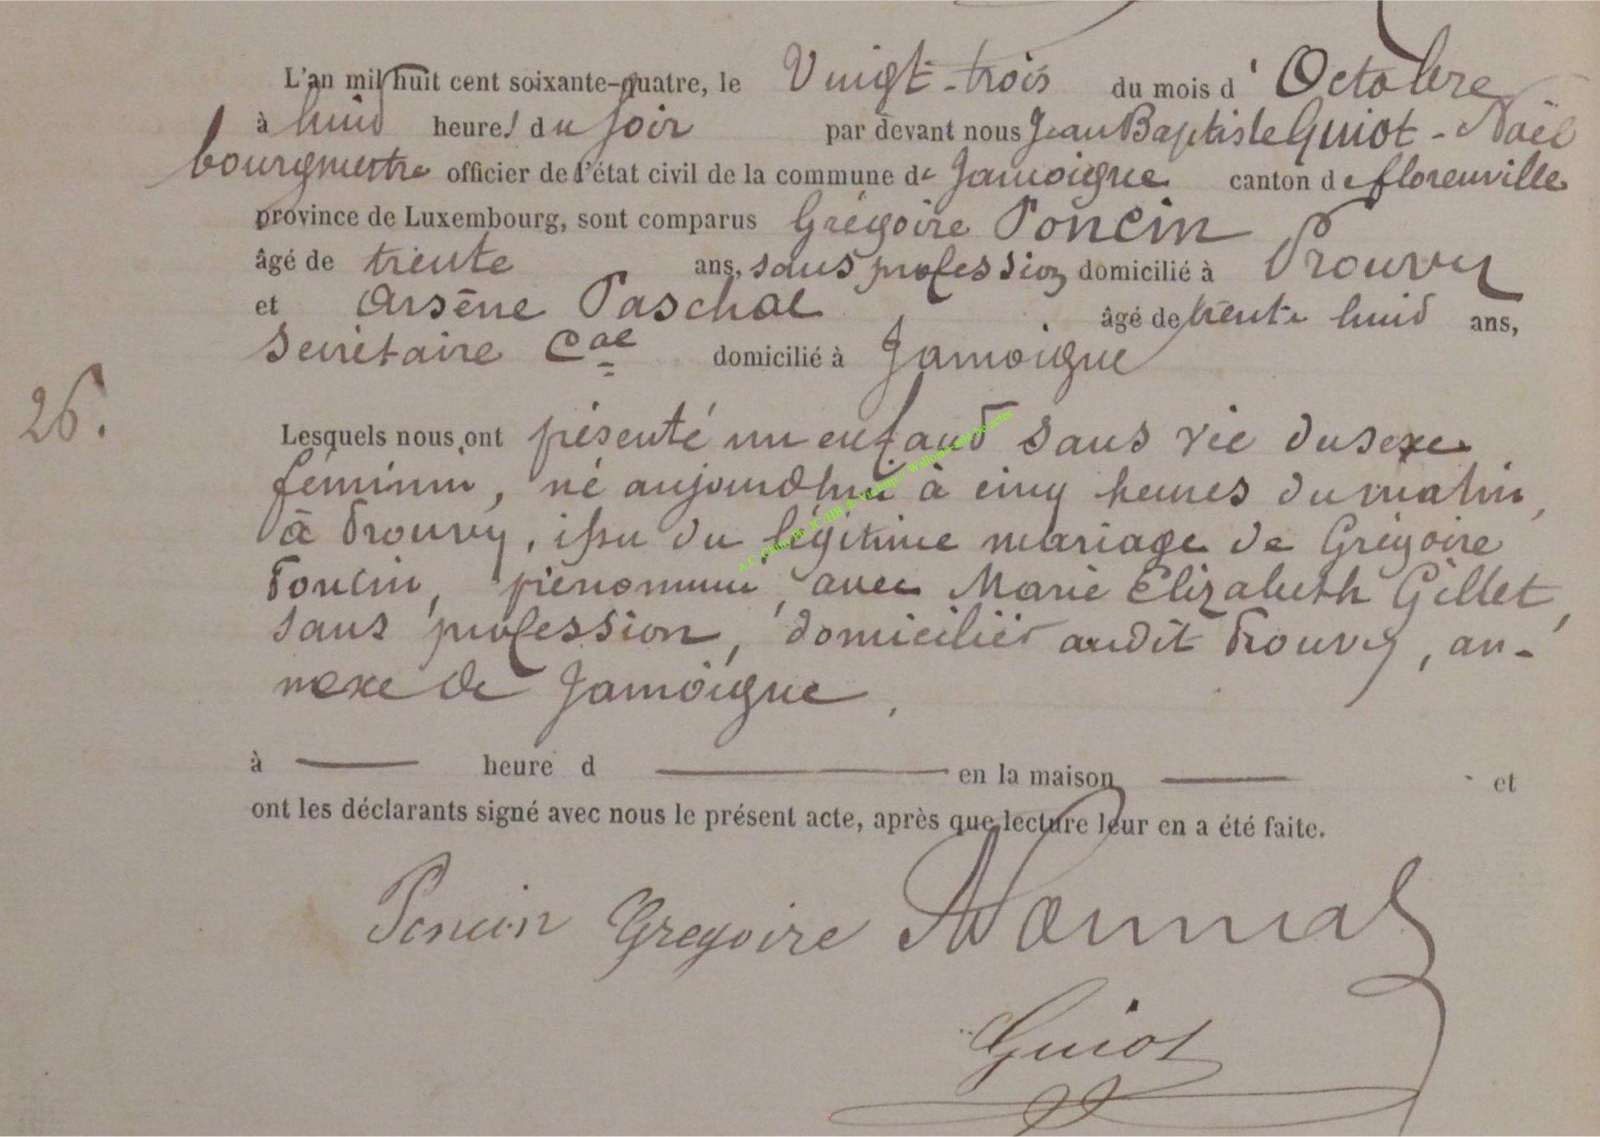 L'an mil huit cent soixante-quatre, le Vingt-trois du mois d'Octobre
à huid heures du soir par devant nous Jean Baptiste Guiot-Noël
bourgmestre officier de l'état civil de la commune de Jamoigne canton de florenville
province de Luxembourg, sont comparus Grégoire Poncin
âgé de trente ans, sans profession domicilié à Prouvy
et Arsène Paschal âgé de trente huid ans,
Secrétaire Cal domicilié à Jamoigne
26.
Lesquels nous ont présenté un enfand sans vie du sexe
féminin, né aujourdhui à cinq heures du matin,
à Prouvy, issu du légitime mariage de Grégoire
Poncin, prénommé, avec Marie Elizabeth Gillet,
sans profession, domiciliés audit Prouvy, an-
nexe de Jamoigne.
à heure d en la maison et
ont les déclarants signé avec nous le présent acte, après que lecture leur en a été faite.
Poncin Gregoire
Guiot